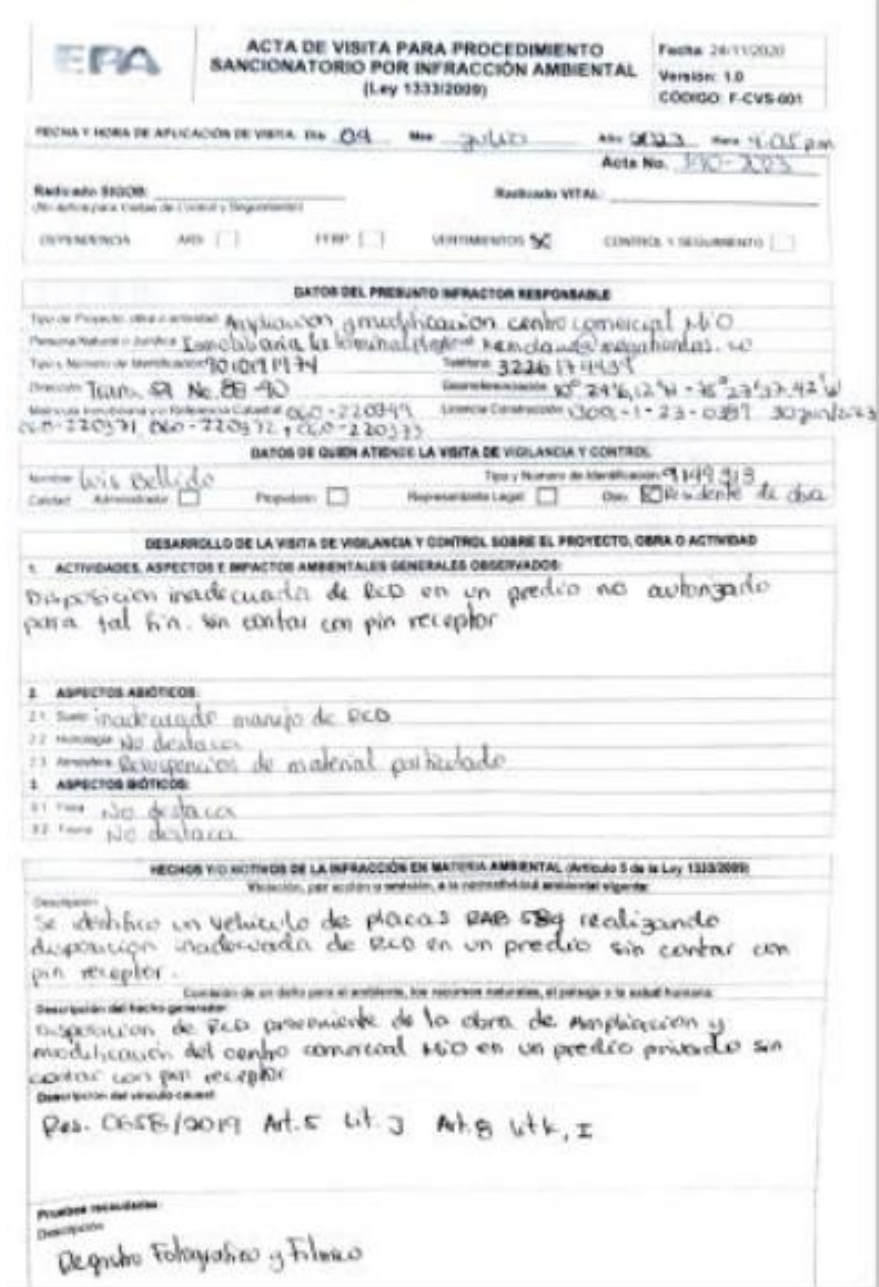 EPA
ACTA DE VISITA PARA PROCEDIMIENTO
SANCIONATORIO POR INFRACCIÓN AMBIENTAL
(Ley 1333/2009)
Fecha: 24/11/2020
Versión: 1.0
CÓDIGO: F-CVS-001
FECHA Y HORA DE APLICACIÓN DE VISITA: Día 04 Mes Julio Año 2023 Hora 4:05 pm
Acta No.
Radicado SIGOB: Radicado VITAL:
(No aplica para Visitas de Control y Seguimiento)
DEPENDENCIA VERTIMIENTOS CONTROL Y SEGUIMIENTO
DATOS DEL PRESUNTO INFRACTOR RESPONSABLE
Tipo de Proyecto, obra o actividad: Ampliacion y modificacion centro comercial MiO
Persona Natural o Jurídica: Inmobiliaria
Tipo y Número de Identificación: Teléfono:
Dirección: Trans. No. 88 - 90 Georreferenciación:
Matrícula Inmobiliaria y/o Referencia Catastral: 060-220949 Licencia Construcción:
060-220971, 060-220972, 060-220973
DATOS DE QUIEN ATIENDE LA VISITA DE VIGILANCIA Y CONTROL
Nombre: Luis Bellido Tipo y Número de Identificación: 9149313
Calidad: Administrador Propietario Representante Legal Otro Residente de obra
DESARROLLO DE LA VISITA DE VIGILANCIA Y CONTROL SOBRE EL PROYECTO, OBRA O ACTIVIDAD
1. ACTIVIDADES, ASPECTOS E IMPACTOS AMBIENTALES GENERALES OBSERVADOS:
Disposicion inadecuada de RCD en un predio no autorizado
para tal fin. sin contar con pin receptor
2. ASPECTOS ABIÓTICOS:
2.1 Suelo: inadecuado manejo de RCD
2.2 Hidrología: No destaca
2.3 Atmósfera: de material particulado
3. ASPECTOS BIÓTICOS:
3.1 Flora: No destaca
3.2 Fauna: No destaca
HECHOS Y/O MOTIVOS DE LA INFRACCIÓN EN MATERIA AMBIENTAL (Artículo 5 de la Ley 1333/2009)
Violación, por acción u omisión, a la normatividad ambiental vigente:
Descripción:
Se identifico un vehiculo de placas 589 realizando
disposicion inadecuada de RCD en un predio sin contar con
pin receptor.
Comisión de un daño para el ambiente, los recursos naturales, el paisaje o la salud humana:
Descripción del hecho generador:
Disposicion de RCD proveniente de la obra de Ampliacion y
modificacion del centro comercial MiO en un predio privado sin
contar con pin receptor
Descripción del vínculo causal:
Res. 0658/2019 Art. 5 Lit. J Art. 8 Lit K, I
Pruebas recaudadas:
Descripción:
Registro Fotografico y Filmico